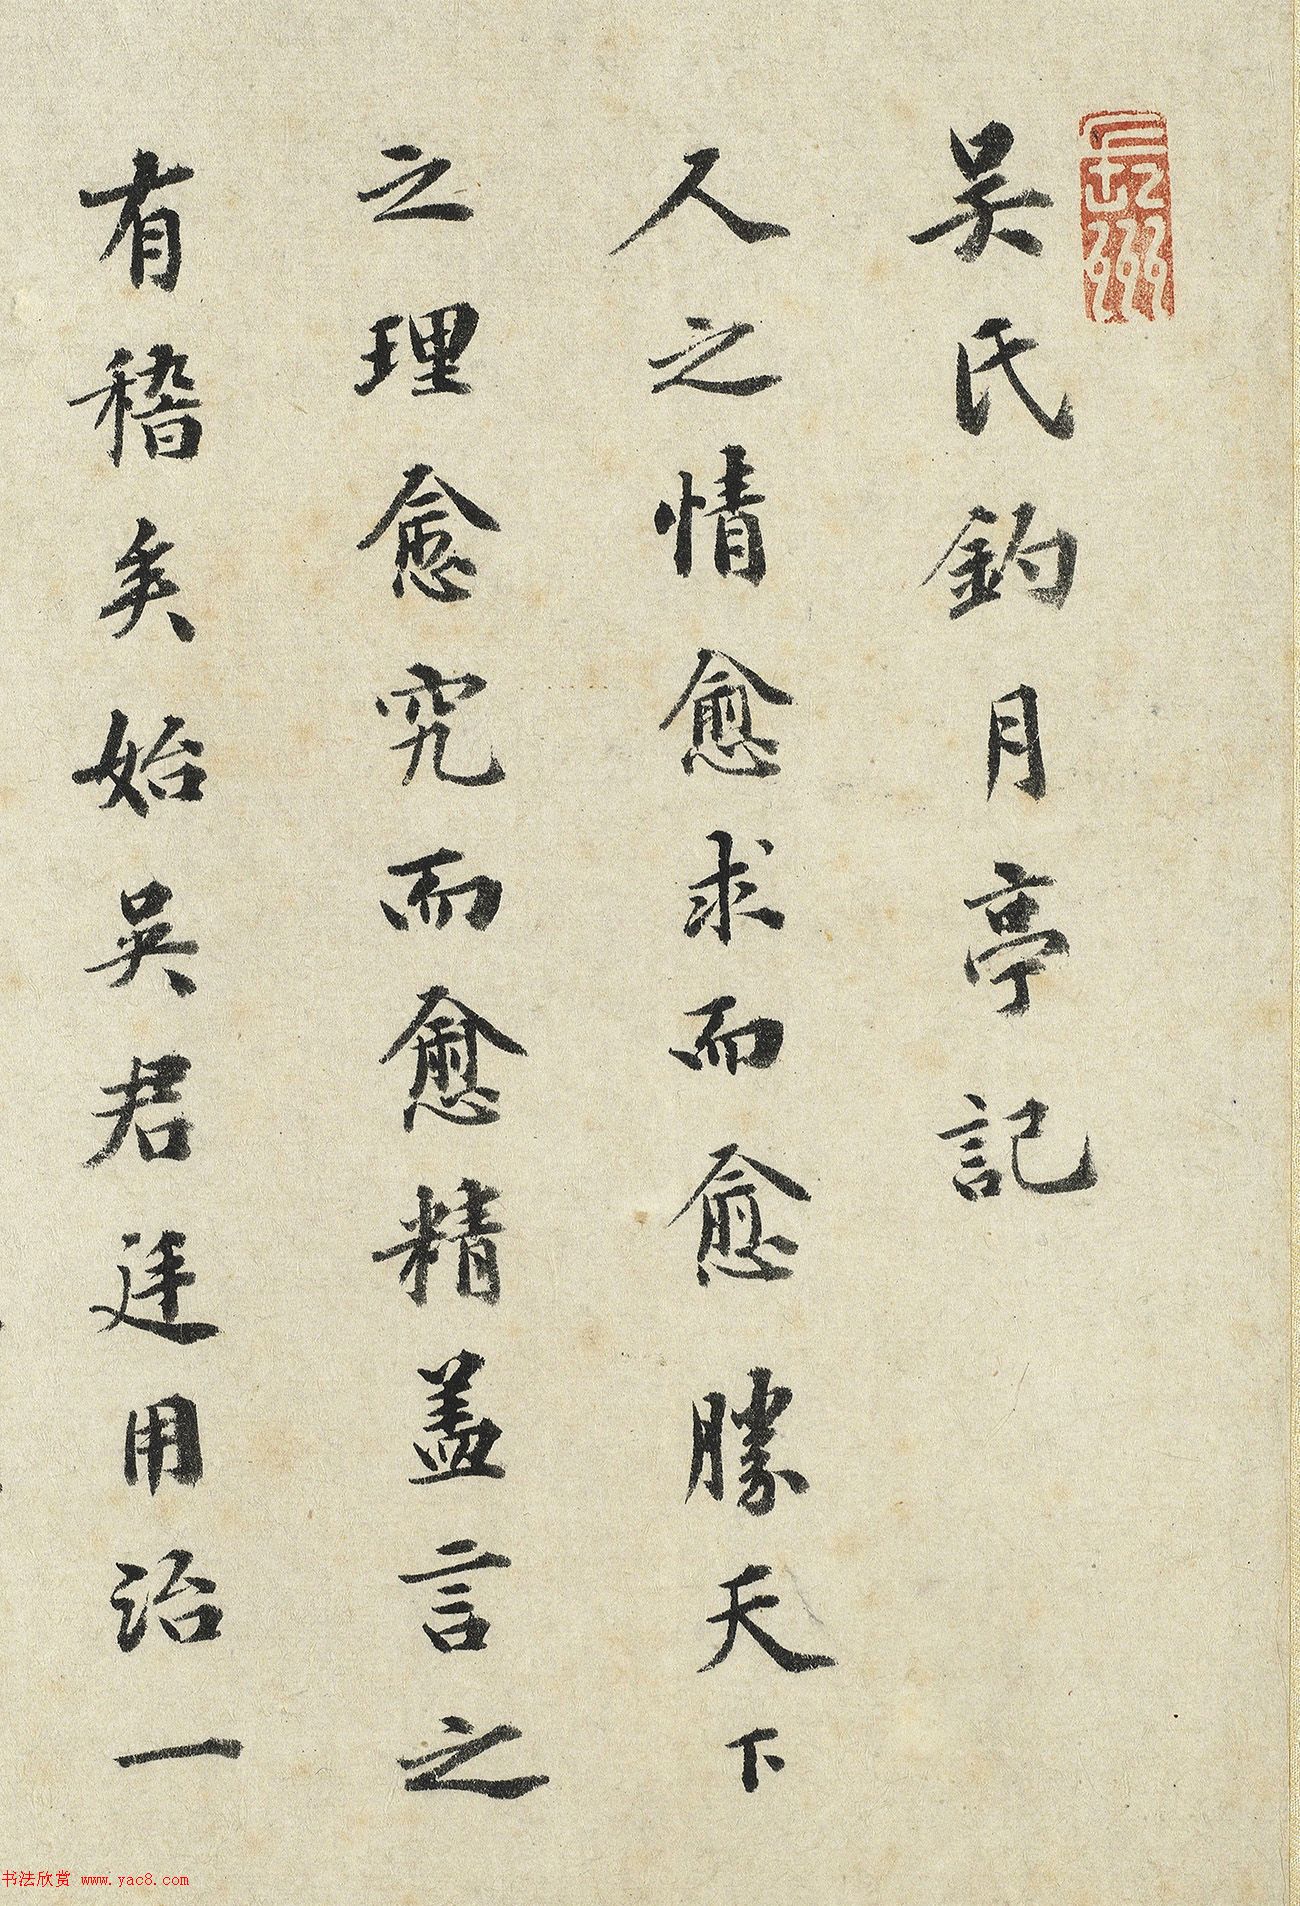 長洲
吴氏釣月亭記
人之情愈求而愈勝天下
之理愈究而愈精盖言之
有稽矣始吴君廷用治一
书法欣赏 www.yac8.com